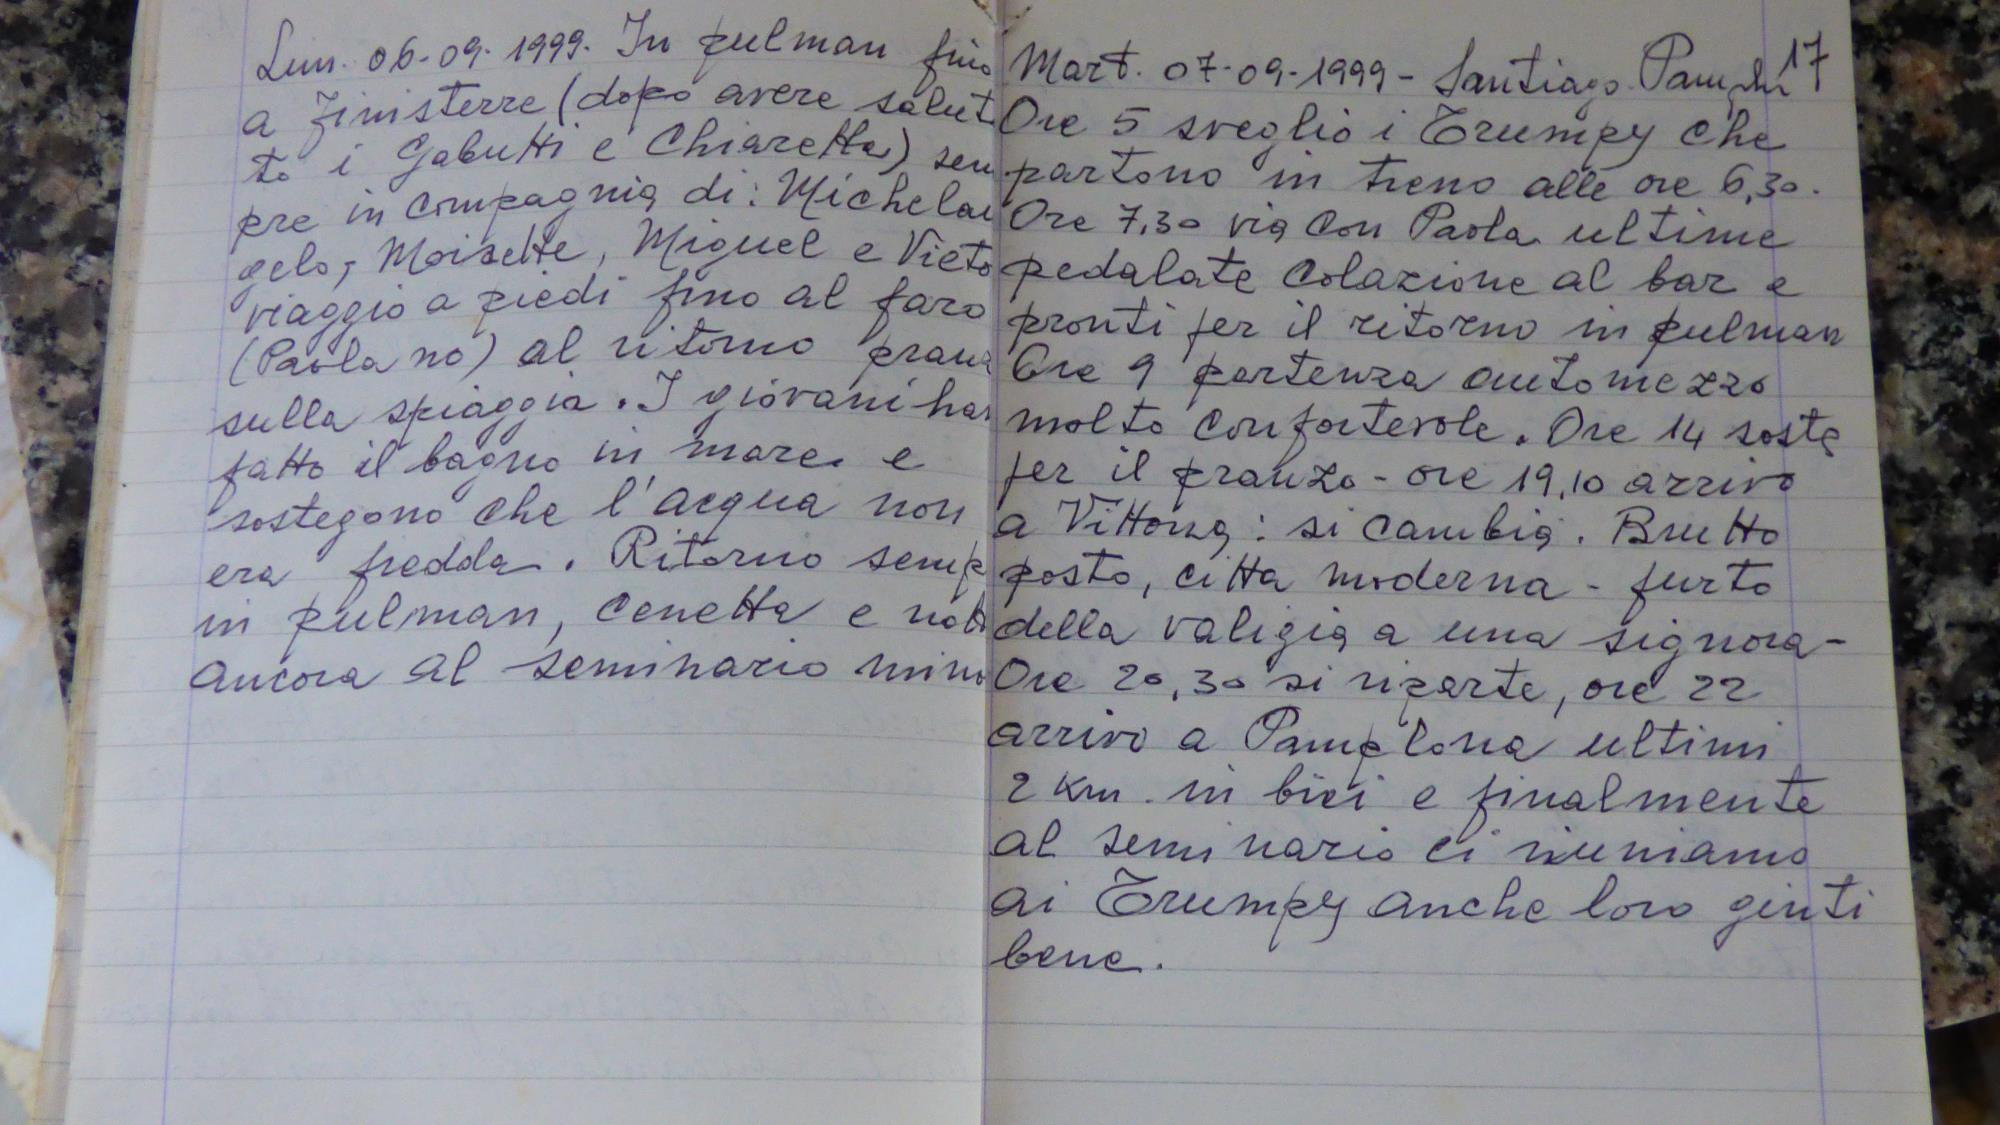 Lun. 06-09-1999. In pulman fino
a Finisterre (dopo avere salut
to i Gabutti e Chiaretta) sem
pre in compagnia di: Michelan
gelo, Moisette, Miguel e Vieto
viaggio a piedi fino al faro
(Paola no) al ritorno pranz
sulla spiaggia. I giovani han
fatto il bagno in mare e
sostegono che l'acqua non
era fredda. Ritorno semp
in pulman, cenetta e nott
ancora al seminario mino
17
Mart. 07-09-1999 - Santiago
Ore 5 sveglio i Trumpy che
partono in treno alle ore 6,30.
Ore 7,30 via con Paola ultime
pedalate colazione al bar e
pronti per il ritorno in pulman
Ore 9 partenza automezzo
molto confortevole. Ore 14 sosta
per il pranzo - ore 19,10 arrivo
a Vittoria: si cambia. Brutto
posto, citta moderna - furto
della valigia a una signora -
Ore 20,30 si riparte, ore 22
arrivo a Pamplona ultimi
2 Km. in bici e finalmente
al seminario ci riuniamo
ai Trumpy anche loro giunti
bene.